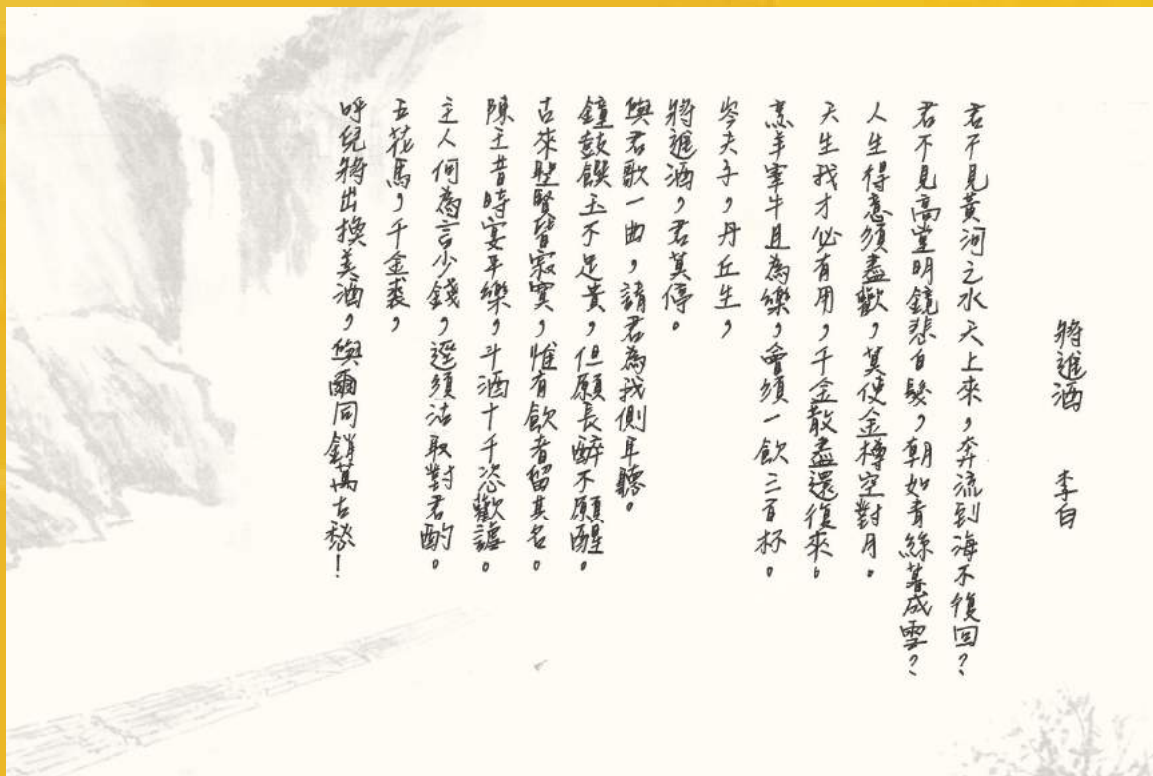 將進酒 李白
君不見黃河之水天上來，奔流到海不復回？
君不見高堂明鏡悲白髮，朝如青絲暮成雪？
人生得意須盡歡，莫使金樽空對月。
天生我才必有用，千金散盡還復來。
烹羊宰牛且為樂，會須一飲三百杯。
岑夫子，丹丘生，
將進酒，君莫停。
與君歌一曲，請君為我側耳聽。
鐘鼓饌玉不足貴，但願長醉不願醒。
古來聖賢皆寂寞，惟有飲者留其名。
陳王昔時宴平樂，斗酒十千恣歡謔。
主人何為言少錢，逕須沽取對君酌。
五花馬，千金裘，
呼兒將出換美酒，與爾同銷萬古愁！